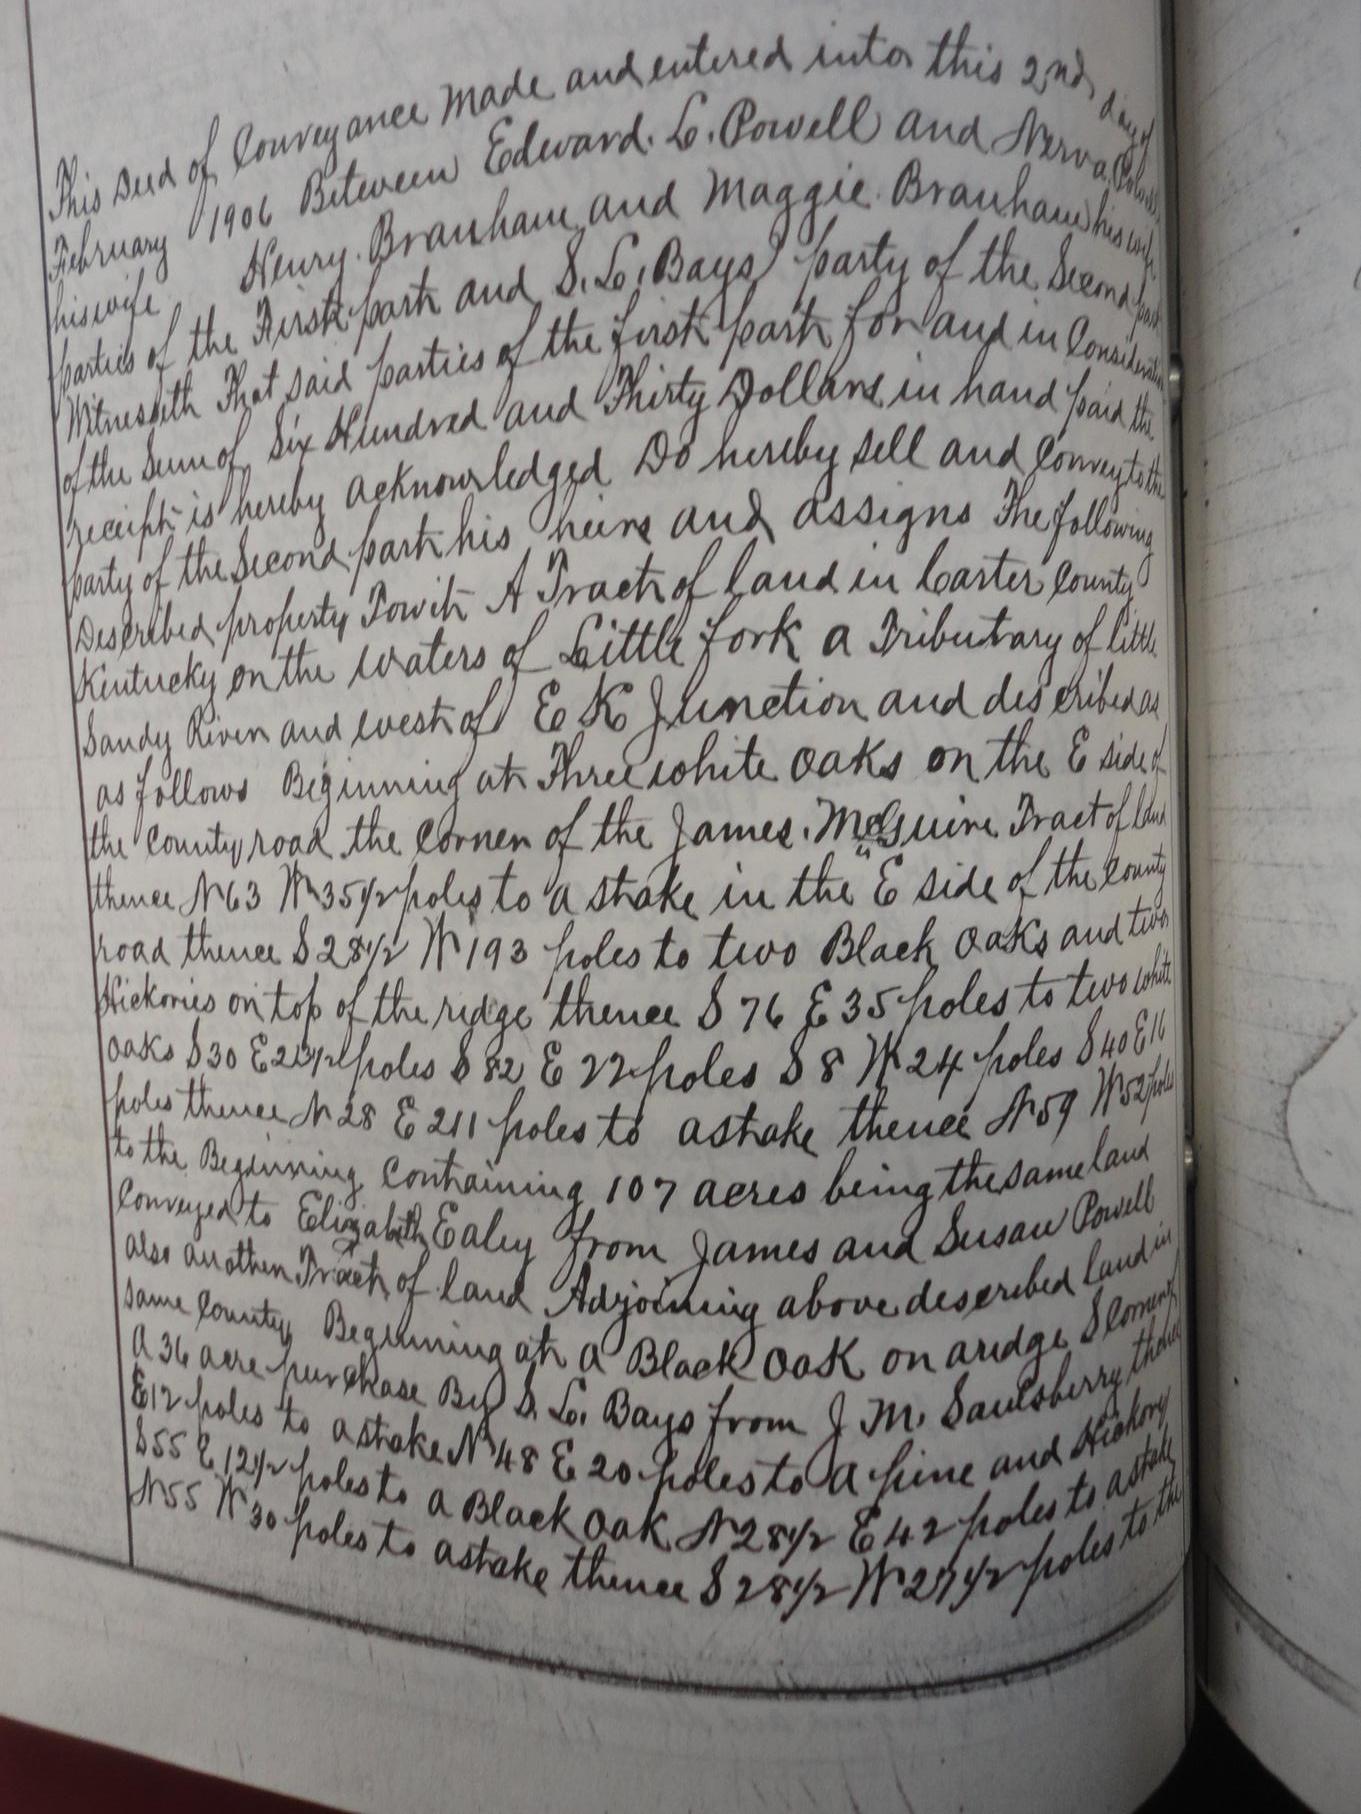 This Deed of Conveyance Made and entered into this 2nd day of
February 1906 Between Edward. L. Powell and Nerva Powell
his wife Henry. Branham and Maggie. Branham his wife
parties of the First part and S. L. Bays party of the Second part
Witnesseth That said parties of the first part for and in Consideration
of the Sum of Six Hundred and Thirty Dollars in hand paid the
receipt is hereby acknowledged Do hereby sell and Convey to the
party of the Second part his heirs and assigns The following
Described property Towit A Tract of land in Carter County
Kentucky on the waters of Little fork a Tributary of little
Sandy River and west of E K Junction and described as
as follows Beginning at Three white oaks on the E side of
the County road the Corner of the James. McGuire Tract of land
thence N 63 W 35 1/2 poles to a stake in the "E side of the County
road thence S 28 1/2 W 193 poles to two Black oaks and two
Hickories on top of the redge thence S 76 E 35 poles to two white
oaks S 30 E poles S 82 E 22 poles S 8 W 24 poles S 40 E 16
poles thence N 28 E 211 poles to a stake thence N 59 W 52 poles
to the Beginning Containing 107 acres being the same land
Conveyed to Elizabeth Ealey from James and Susan Powell
also another Tract of land Adjoining above described land in
same County Beginning at a Black oak on a ridge S Corner of
A 36 acre purchase By S. L. Bays from J M. Saulsberry thence
E 12 poles to a stake N 48 E 20 poles to a pine and Hickory
S 55 E 12 1/2 poles to a Black oak N 28 1/2 E 42 poles to a stake
N 55 W 30 poles to a stake thence S 28 1/2 W 27 1/2 poles to the